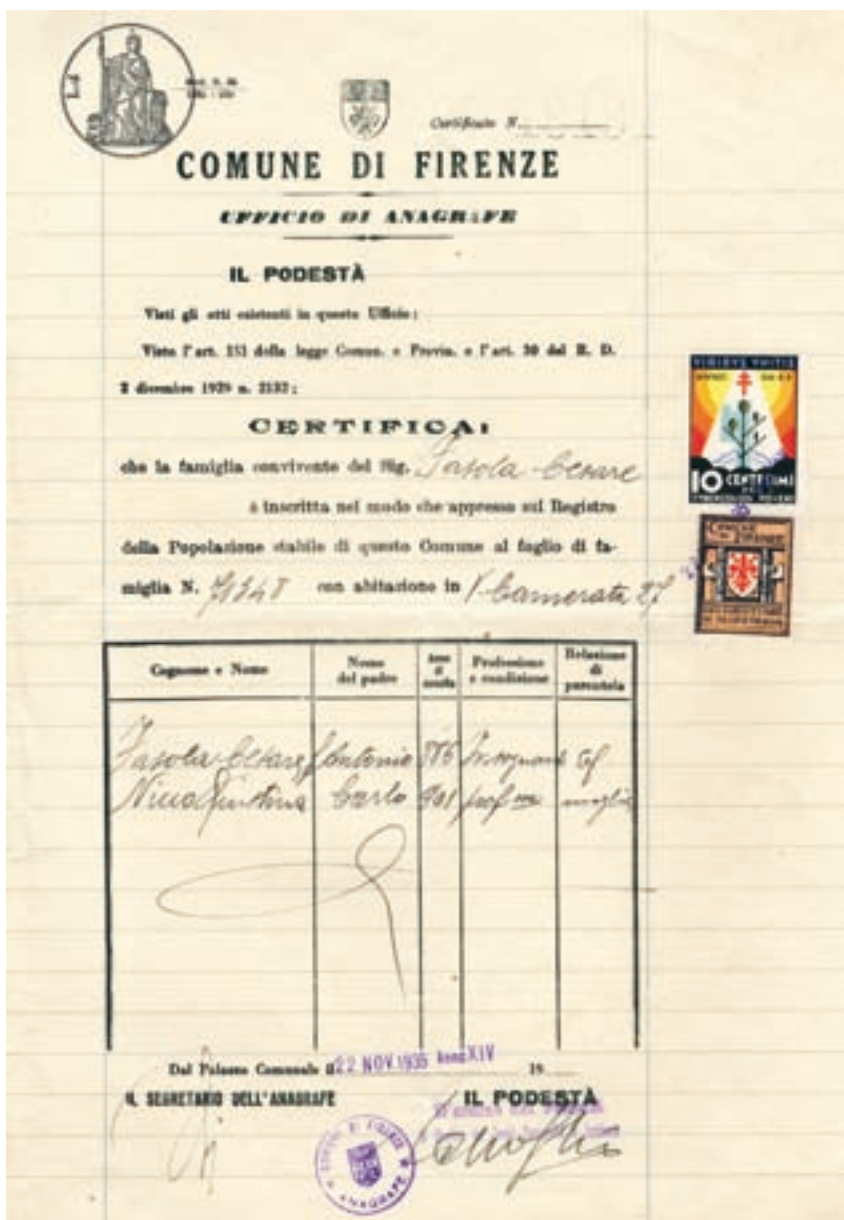 Certificato N.
COMUNE DI FIRENZE
UFFICIO DI ANAGRAFE
IL PODESTÀ
Visti gli atti esistenti in questo Ufficio;
Visto l'art. 151 della legge Comun. e Provin. e l'art. 30 del R. D.
2 dicembre 1929 n. 2132;
CERTIFICA:
che la famiglia convivente del Sig. Fasola Cesare
è inscritta nel modo che appresso sul Registro
della Popolazione stabile di questo Comune al foglio di fa-
miglia N. 71348 con abitazione in V. Camerata 27
10 CENTESIMI
COMUNE
DI FIRENZE
Cognome e Nome
Nome
del padre
Anno
di
nascita
Professione
e condizione
Relazione
di
parentela
Fasola Cesare Antonio Insegnante
Nina Giustina Carlo 901 moglie
Dal Palazzo Comunale il 22 NOV. 1935 Anno XIV 19
IL SEGRETARIO DELL'ANAGRAFE
IL PODESTÀ
COMUNE DI FIRENZE
ANAGRAFE